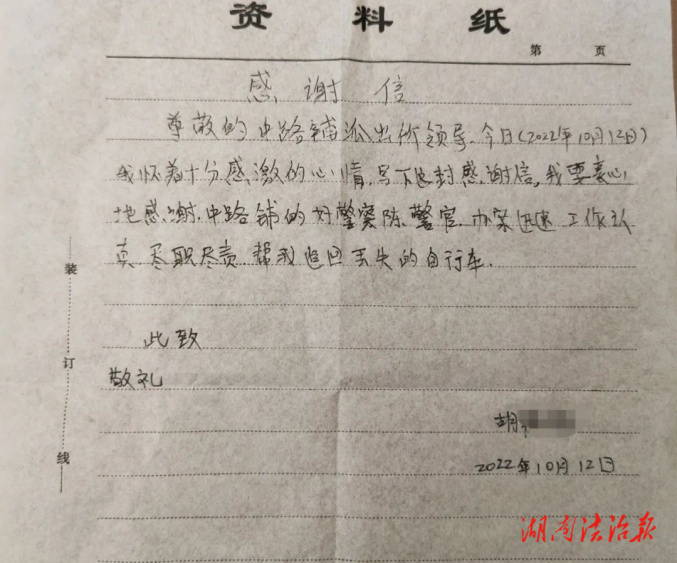 资料纸
第 页
感谢信
尊敬的中路铺派出所领导.今日(2022年10月12日)
我怀着十分感激的心情,写下这封感谢信,我要衷心
地感谢.中路铺的好警察陈警官.办案迅速 工作认
真 尽职尽责 帮我追回丢失的自行车.
此致
敬礼
胡
2022年10月12日
装订线
湖南法治报